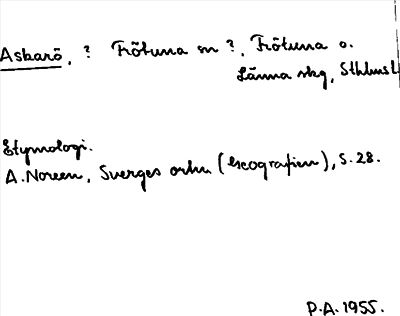 Askarö, ? Frötuna sn ?, Frötuna o.
Länna skg, Sthlms l
Etymologi.
A. Noreen, Sverges ortn (Geografien), S. 28.
P.A. 1955.